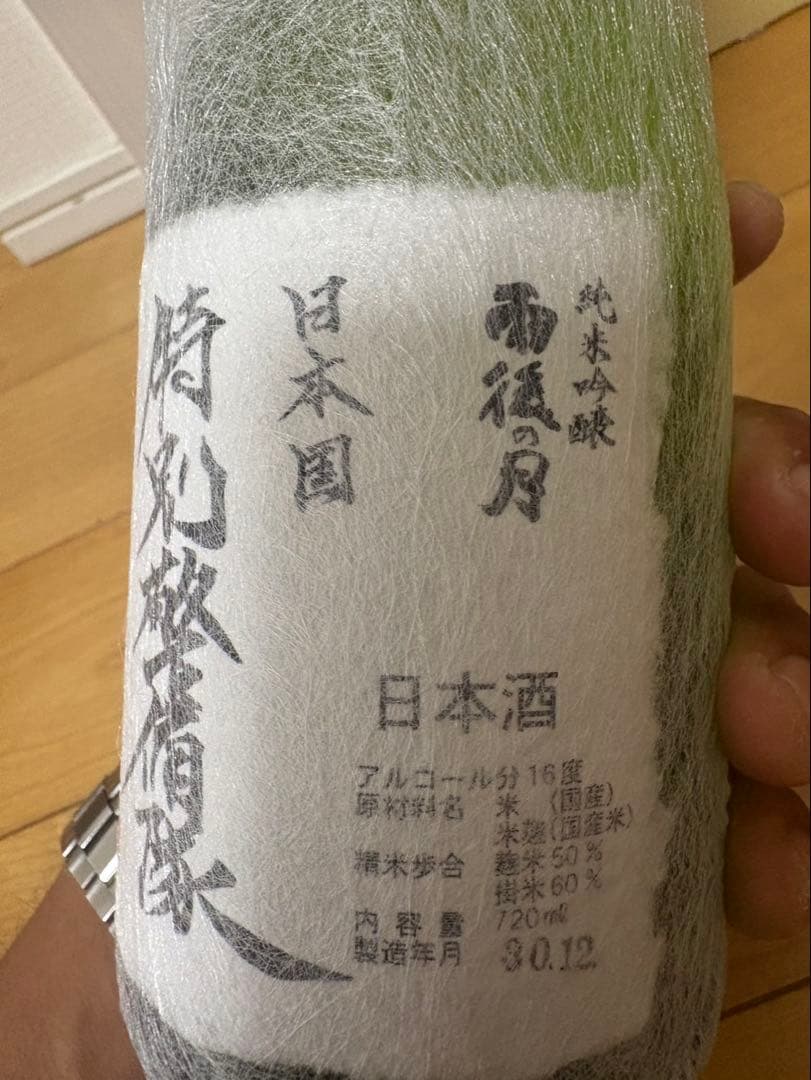 純米吟醸
雨後の月
日本国
特別警備隊
日本酒
アルコール分16度
原材料名 米 (国産)
米麹(国産米)
精米歩合 麹米50%
掛米60%
内容量 720㎖
製造年月 30.12.